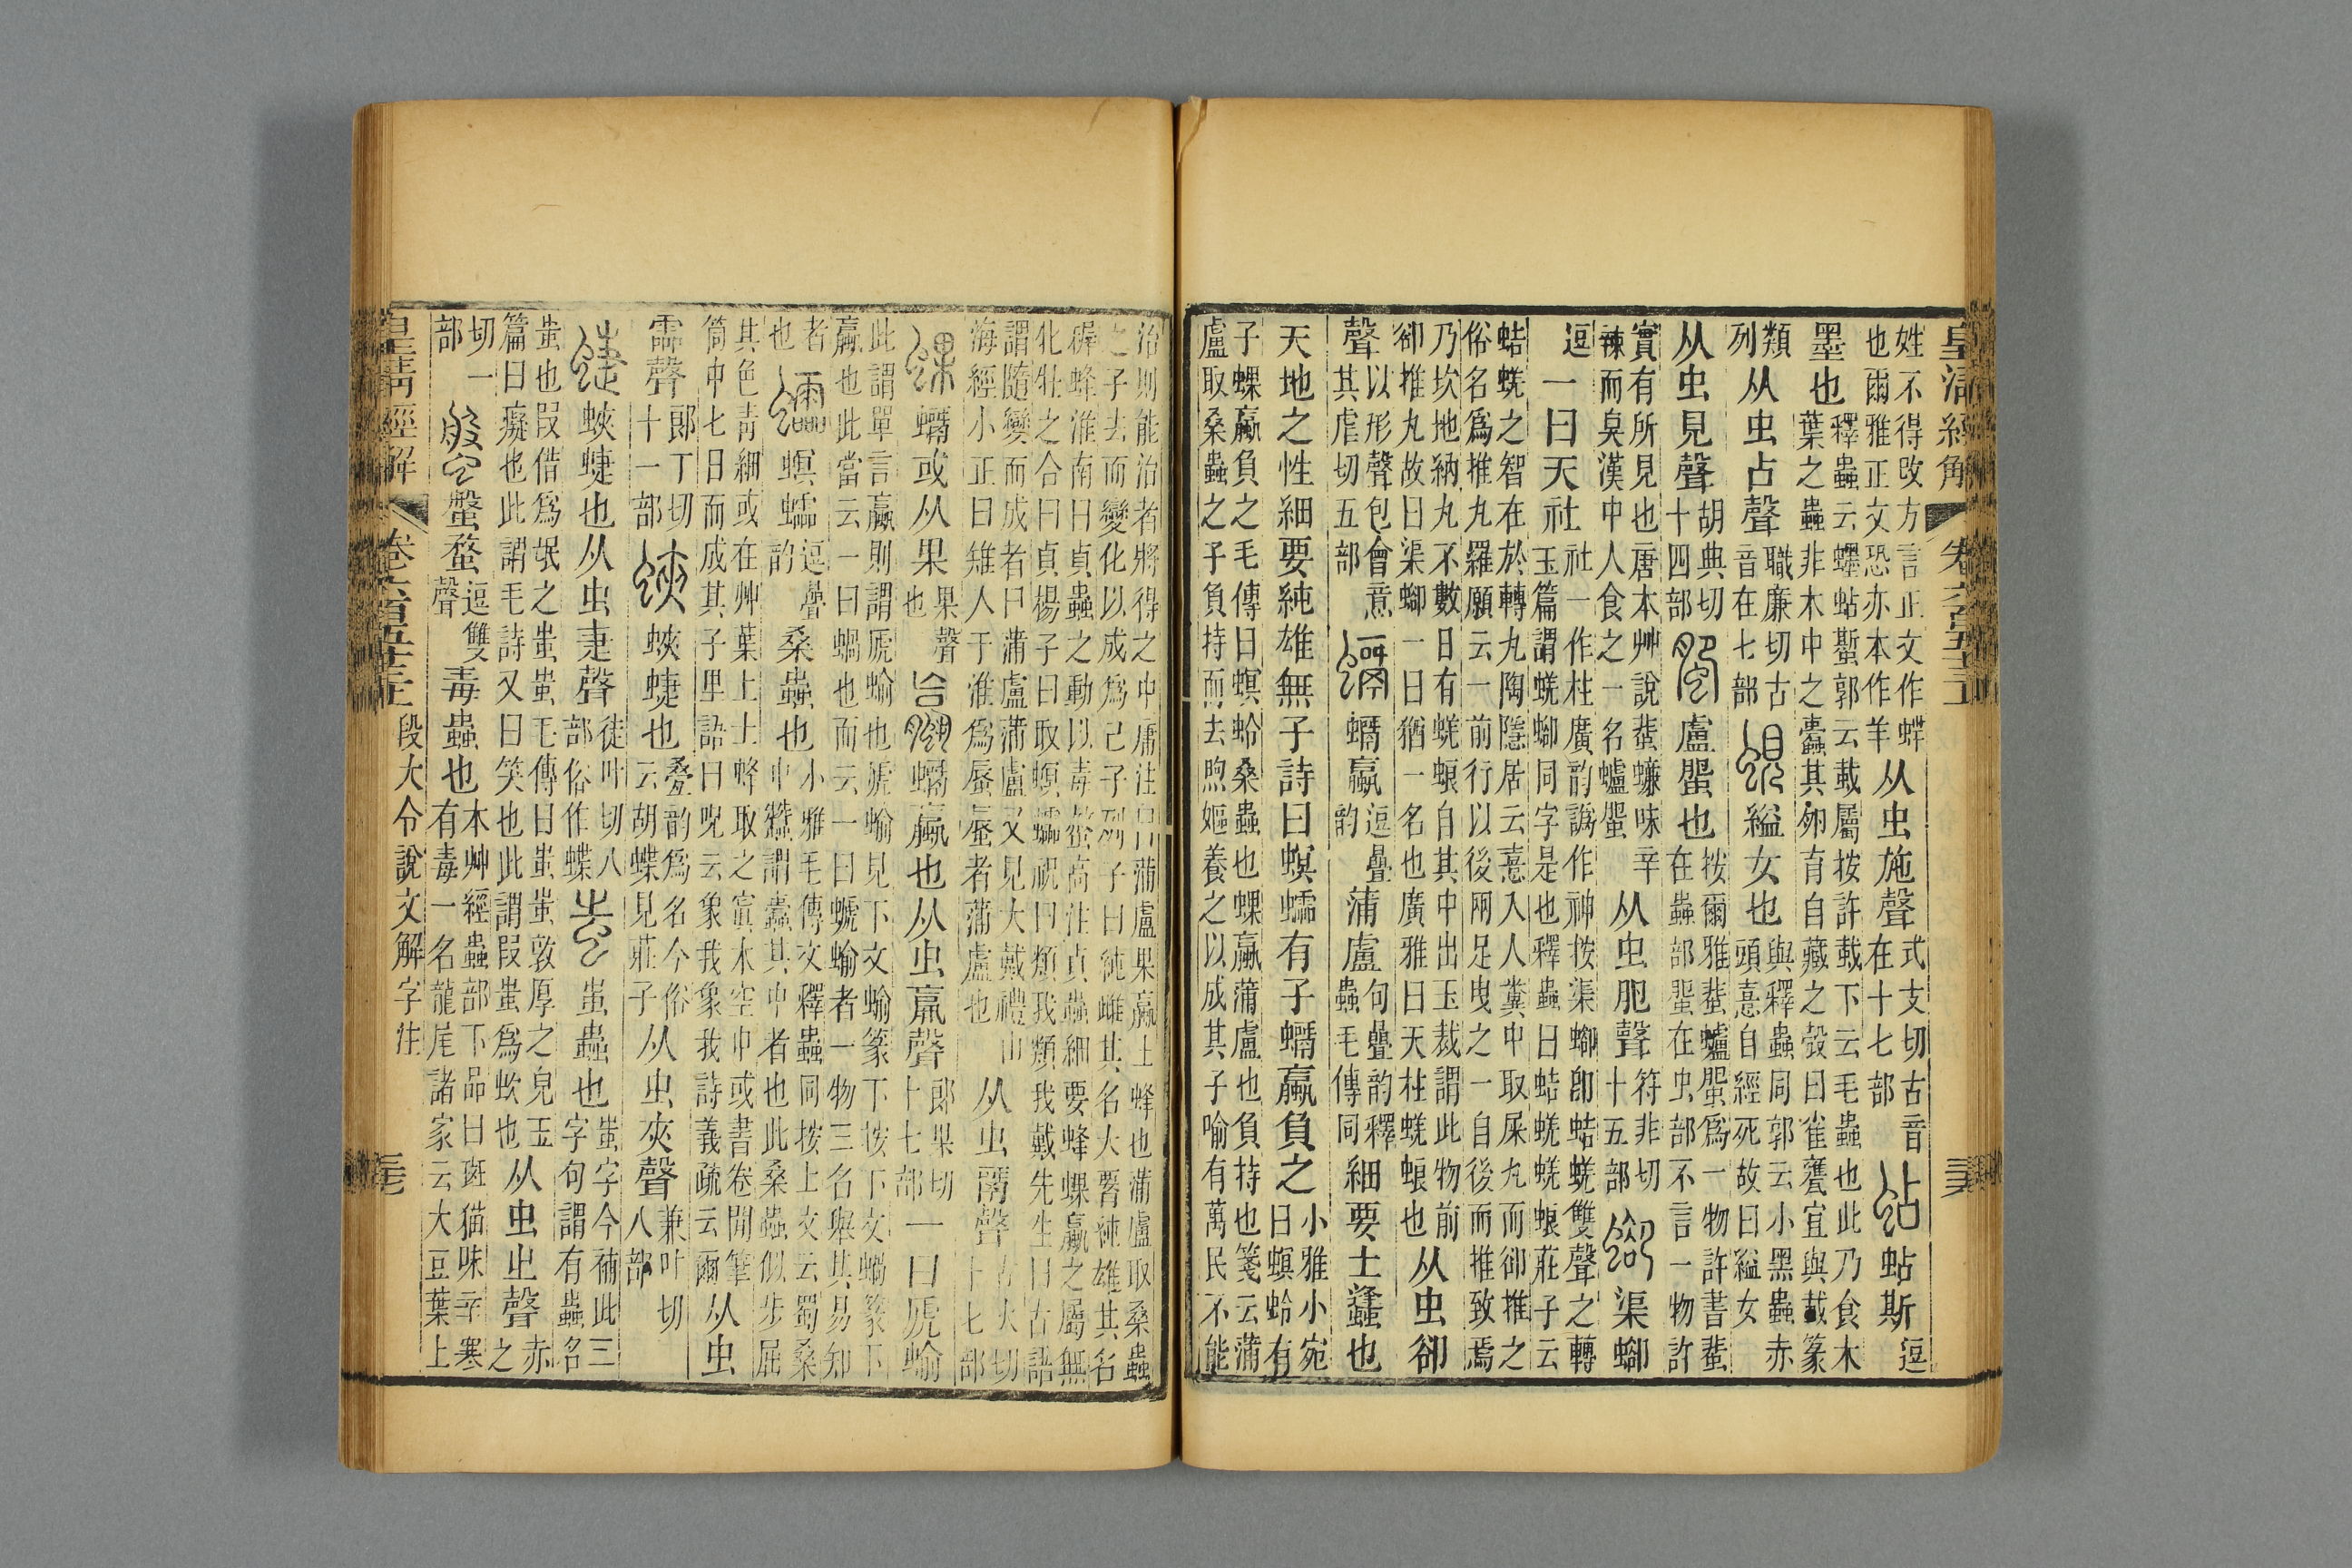 皇清經解 卷六百五十三
姓不得改方言正文作蛘也爾雅正文恐亦本作羊从虫施聲式支切古音在十七部蛅蛅斯逗
墨也釋蟲云蟔蛅蟴郭云蛓屬按許蛓下云毛蟲也此乃食木葉之蟲非木中之蠹其卵育自藏之殻曰雀甕宜與蛓篆
類列从虫占聲職廉切古音在七部蜆縊女也與釋蟲同郭云小黑蟲赤頭憙自經死故曰縊女
从虫見聲胡典切十四部蜰盧蜰也按爾雅蜚蠦蜰爲一物許書蜚在蟲部蜰在虫部不言一物許
實有所見也唐本艸說蜚蠊味辛辣而臭漢中人食之一名蠦蜰从虫肥聲符非切十五部𧌑渠𧌑
逗一曰天社社一作柱廣韵譌作神按渠𧌑卽蛣蜣雙聲之轉玉篇謂蜣𧌑同字是也釋蟲曰蛣蜣蜣蜋莊子云
蛣蜣之智在於轉丸陶隱居云憙入人糞中取屎丸而卻推之俗名爲推丸羅願云一前行以後兩足曳之一自後而推致焉
乃坎地納丸不數日有蜣蜋自其中出玉裁謂此物前卻推丸故曰渠𧌑一曰猶一名也廣雅曰天柱蜣蜋也从虫卻
聲以形聲包會意其虐切五部𧓬𧓬蠃逗疊韵蒲盧句疊韵釋蟲毛傳同細要土蠭也
天地之性細要純雄無子詩曰螟蠕有子𧓬蠃負之小雅小宛曰螟蛉有
子蜾蠃負之毛傳曰螟蛉桑蟲也蜾蠃蒲盧也負持也箋云蒲盧取桑蟲之子負持而去煦嫗養之以成其子喻有萬民不能
治則能治者將得之中庸注曰蒲盧果蠃土蜂也蒲盧取桑蟲之子去而變化以成爲己子列子曰純雌其名大䐁純雄其名
稺蜂淮南曰貞蟲之動以毒螫高注貞蟲細要蜂蜾蠃之屬無牝牡之合曰貞楊子曰取螟蠕祝曰類我類我戴先生曰古語
謂隨變而成者曰蒲盧蒲盧又見大戴禮山海經小正曰雉入于淮爲蜃蜃者蒲盧也从虫𩰲聲古火切十七部
蜾𧓬或从果果聲也蠃𧓬蠃也从虫𣎆聲郎果切十七部一曰虒蝓
此謂單言蠃則謂虒蝓也虒蝓見下文蝓篆下按下文蝸篆下蠃也此當云一曰蝸也而云一曰虒蝓者一物三名與其易知
者也蠕螟蠕逗疊韵桑蟲也小雅毛傳文釋蟲同按上文云蜀桑中蠶謂蠹其中者也此桑蟲似步屈
其色青細或在艸葉上土蜂取之寘木空中或書卷間筆筒中七日而成其子里語曰呪云象我象我詩義疏云爾从虫
霝聲郎丁切十一部蛺蛺蜨也疊韵爲名今俗云胡蝶見莊子从虫夾聲兼叶切八部
蜨蛺蜨也从虫疌聲徒叶切八部俗作蝶蚩蚩蟲也蚩字今補此三字句謂有蟲名
蚩也叚借爲氓之蚩蚩毛傳曰蚩蚩敦厚之皃玉篇曰癡也此謂毛詩又曰笑也此謂叚蚩爲𣢑也从虫㞢聲赤之
切一部螌螌蝥逗雙聲毒蟲也本艸經蟲部下品曰斑猫味辛寒有毒一名龍尾諸家云大豆葉上
皇清經解 卷六百五十三 段大令說文解字注